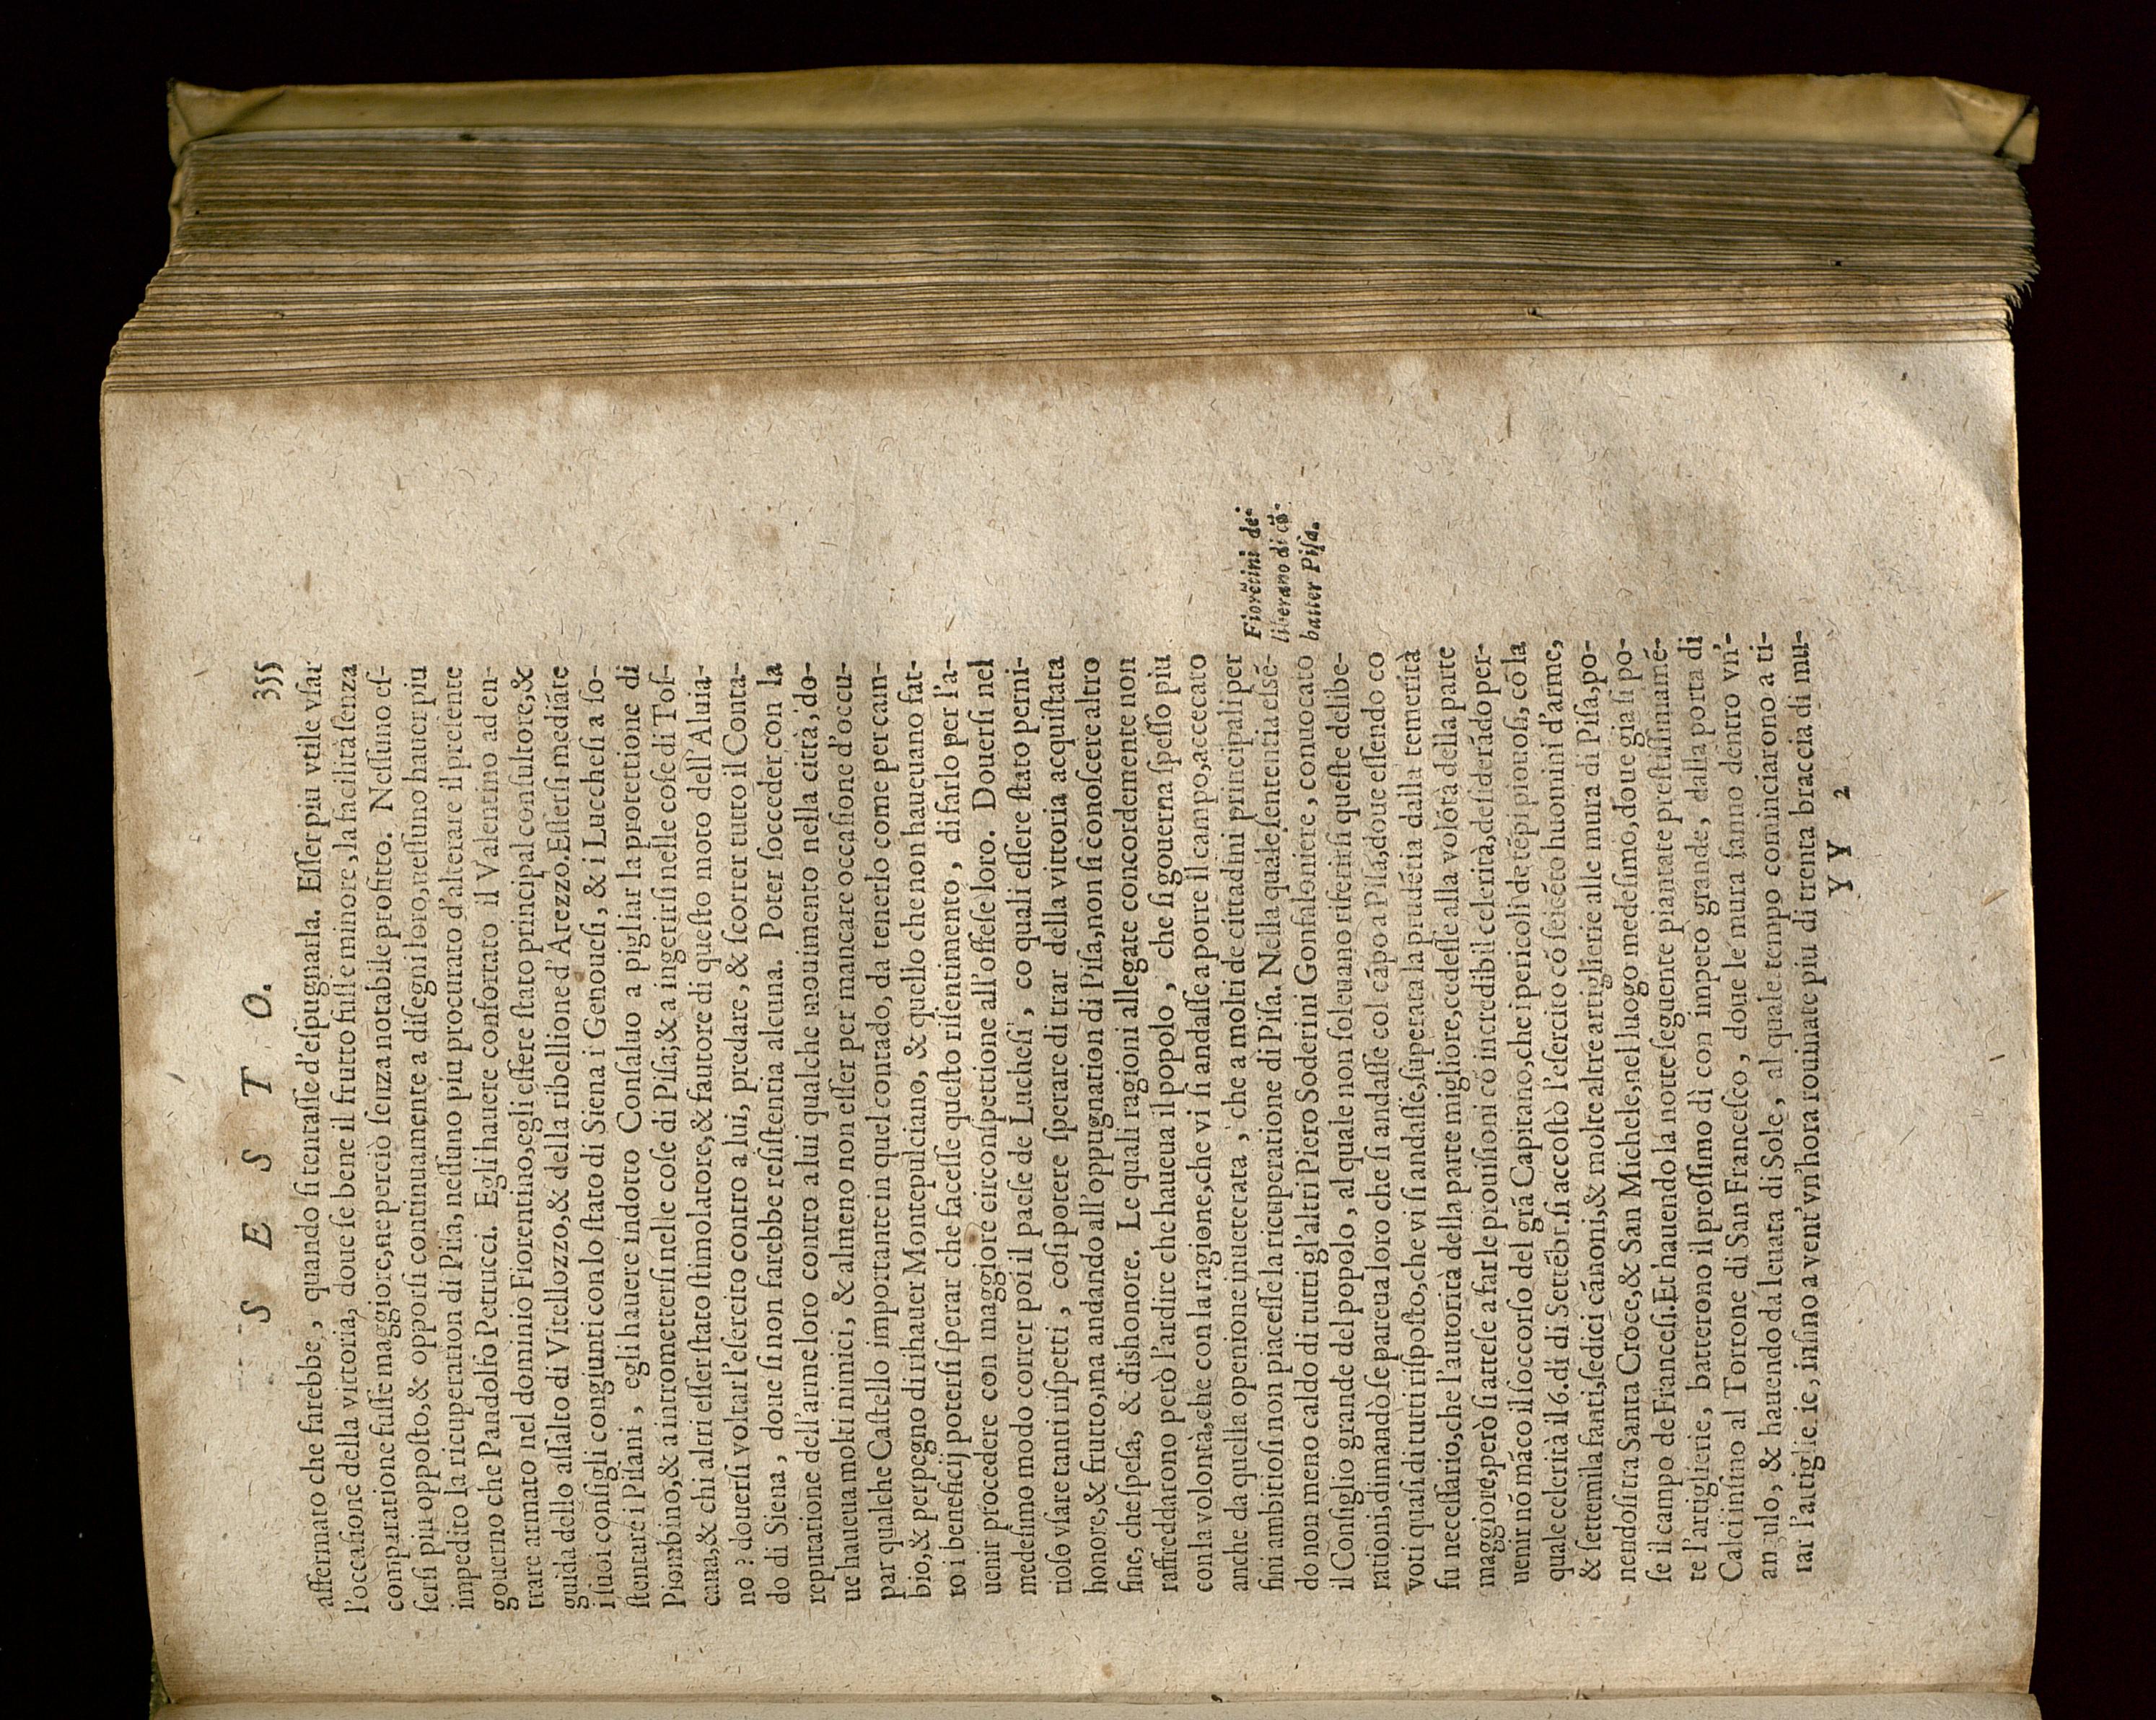 S E S T O. 355
affermato che farebbe, quando ſi tentaſſe d'eſpugnarla. Eſſer piu vtile vſar
l'occaſione della vittoria, doue ſe bene il frutto fuſſe minore, la facilità ſenza
comparatione fuſſe maggiore, ne perciò ſenza notabile profitto. Neſſuno eſ-
ſerſi piu oppoſto, & opporſi continuamente a diſegni loro, neſſuno hauer piu
impedito la ricuperation di Piſa, neſſuno piu procurato d'alterare il preſente
gouerno che Pandolfo Petrucci. Egli hauere confortato il Valentino ad en-
trare armato nel dominio Fiorentino, egli eſſere ſtato principal conſultore, &
guida dello aſſalto di Vitellozzo, & della ribellione d'Arezzo. Eſſerſi mediāte
i ſuoi conſigli congiunti con lo ſtato di Siena i Genoueſi, & i Luccheſi a ſo-
ſtentare i Piſani, egli hauere indotto Conſaluo a pigliar la protettione di
Piombino, & a intrometterſi nelle coſe di Piſa; & a ingerirſi nelle coſe di Toſ-
cana, & chi altri eſſer ſtato ſtimolatore, & fautore di queſto moto dell'Aluia-
no? douerſi voltar l'eſercito contro a lui, predare, & ſcorrer tutto il Conta-
do di Siena, doue ſi non farebbe reſiſtentia alcuna. Poter ſocceder con la
reputatione dell'arme loro contro a lui qualche mouimento nella città, do-
ue haueua molti nimici, & almeno non eſſer per mancare occaſione d'occu-
par qualche Caſtello importante in quel contado, da tenerlo come per cam-
bio, & per pegno di rihauer Montepulciano, & quello che non haueuano fat-
to i beneficij poterſi ſperar che faceſſe queſto riſentimento, di farlo per l'a-
uenir procedere con maggiore circonſpettione all'offeſe loro. Douerſi nel
medeſimo modo correr poi il paeſe de Lucheſi, co quali eſſere ſtato perni-
tioſo vſare tanti riſpetti, coſi potere ſperare di trar della vittoria acquiſtata
honore, & frutto, ma andando all'oppugnation di Piſa, non ſi conoſcere altro
fine, che ſpeſa, & dishonore. Le quali ragioni allegate concordemente non
raffreddarono però l'ardire che haueua il popolo, che ſi gouerna ſpeſſo piu
con la volontà, che con la ragione, che vi ſi andaſſe a porre il campo, accecato
anche da quella openione inueterata, che a molti de cittadini principali per
fini ambitioſi non piaceſſe la ricuperatione di Piſa. Nella quale ſententia eſsē-
do non meno caldo di tutti gl'altri Piero Soderini Gonfaloniere, conuocato
il Conſiglio grande del popolo, al quale non ſoleuano riferirſi queſte delibe-
rationi, dimandò ſe pareua loro che ſi andaſſe col cāpo a Piſa, doue eſſendo co
voti quaſi di tutti riſpoſto, che vi ſi andaſſe, ſuperata la prudētia dalla temerità
fu neceſſario, che l'autorità della parte migliore, cedeſſe alla volōtà della parte
maggiore, però ſi atteſe a far le prouiſioni cō incredibil celerità, deſiderādo per-
uenir nō māco il ſoccorſo del grā Capitano, che i pericoli de tēpi piouoſi, cō la
quale celerità il 6. dì di Settēbr. ſi accoſtò l'eſercito cō ſeicēto huomini d'arme,
& ſettemila fanti, ſedici cānoni, & molte altre artiglierie alle mura di Piſa, po-
nendoſi tra Santa Croce, & San Michele, nel luogo medeſimo, doue gia ſi po-
ſe il campo de Franceſi. Et hauendo la notte ſeguente piantate preſtiſſimamē-
te l'artiglierie, batterono il proſſimo dì con impeto grande, dalla porta di
Calci inſino al Torrone di San Franceſco, doue le mura fanno dentro vn'-
angulo, & hauendo da leuata di Sole, al quale tempo cominciarono a ti-
rar l'artiglierie, inſino a vent'vn'hora rouinate piu di trenta braccia di mu-
Y Y 2
Fiorētini de-
liberano di cō-
batter Piſa.